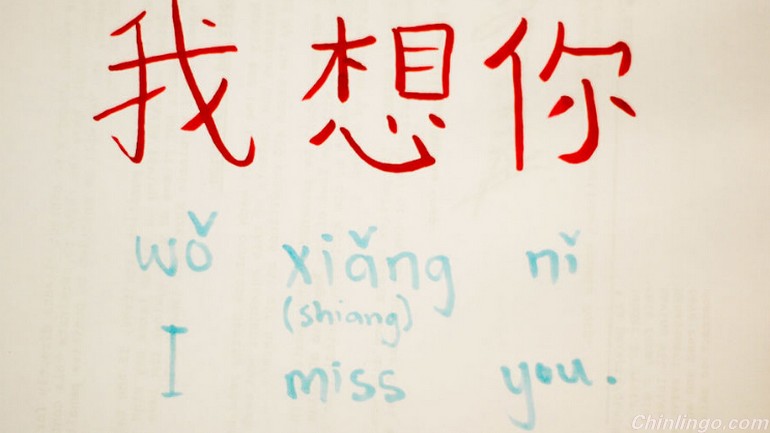 我 想 你
wǒ xiǎng nǐ
(shiang)
I miss you.
Chinlingo.com